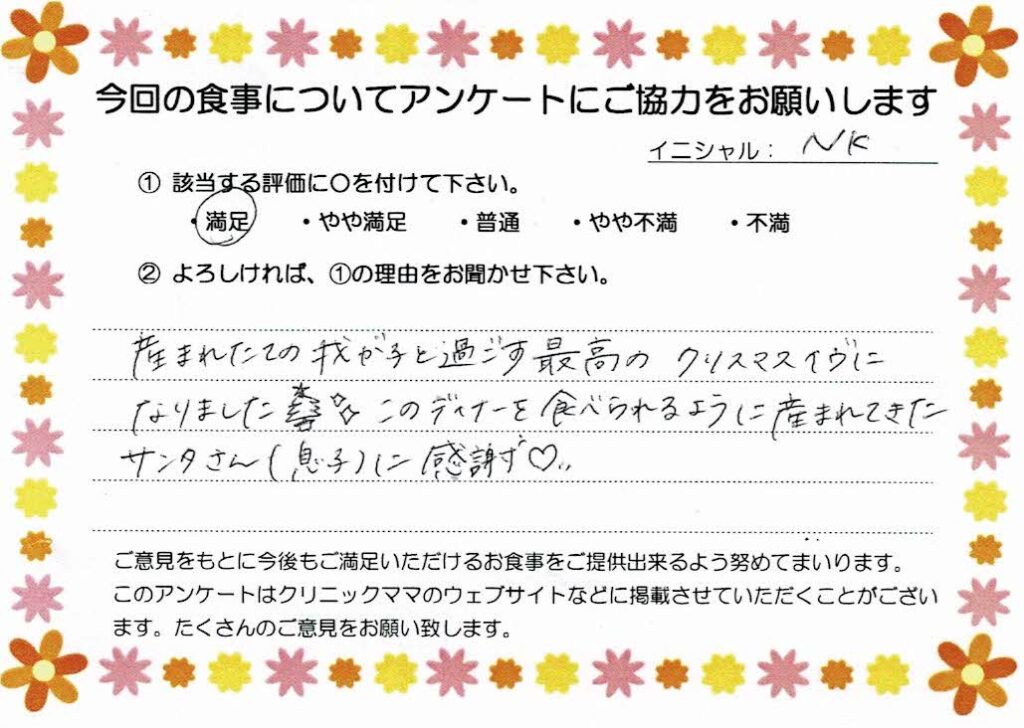 今回の食事についてアンケートにご協力をお願いします
イニシャル： NK
① 該当する評価に〇を付けて下さい。
・満足 ・やや満足 ・普通 ・やや不満 ・不満
② よろしければ、①の理由をお聞かせ下さい。
産まれたての我が子と過ごす最高の クリスマスイヴに
なりました このディナーを食べられるように産まれてきた
サンタさん(息子)に 感謝です♡,,
ご意見をもとに今後もご満足いただけるお食事をご提供出来るよう努めてまいります。
このアンケートはクリニックママのウェブサイトなどに掲載させていただくことがござい
ます。たくさんのご意見をお願い致します。